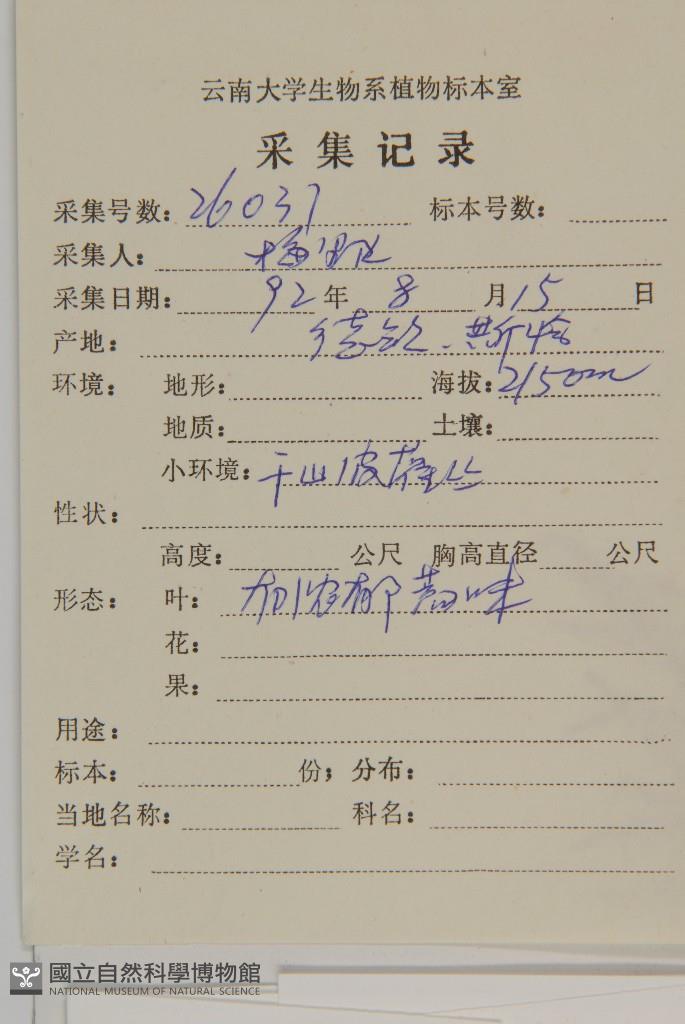 云南大学生物系植物标本室
采集记录
采集号数: 26037 标本号数:
采集人:
采集日期: 92 年 8 月 15 日
产地: 德钦、
环境: 地形: 海拔: 2150m
地质: 土壤:
小环境: 干山坡灌丛
性状:
高度: 公尺 胸高直径 公尺
形态: 叶: 有浓郁 味
花:
果:
用途:
标本: 份; 分布:
当地名称: 科名:
学名:
國立自然科學博物館
NATIONAL MUSEUM OF NATURAL SCIENCE